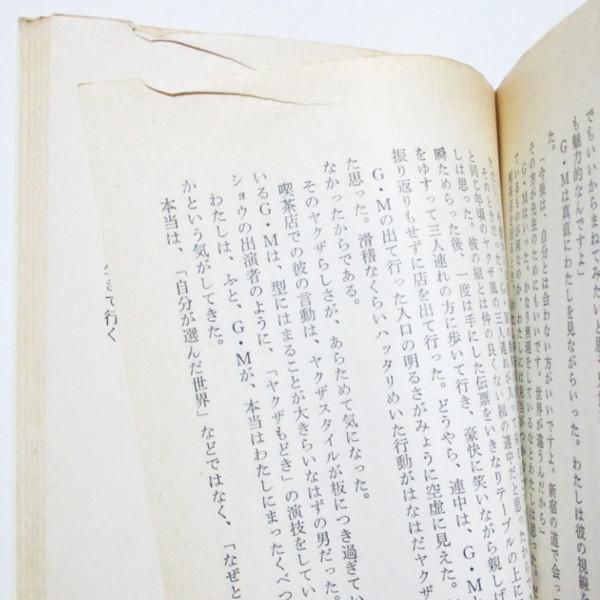 でもいいからまねてみたい
も魅力的なんですよ」
G・Mは真直にわたしを見ながらいった。わたしは彼の視線を
た。
「今後は、自分とは会わない方がいいですよ。新宿の道で会っ
その方が先生のためにもいいです。世界が違うんだから」
G・Mはいった。かなり無理をしているなとわたしは思った。
と同じ年頃のヤクザ風の三人連れが
しは思った。彼の組とは仲の良くない組の連中だと思った
瞬ためらった後、一度は手にした伝票をいきなりテーブルの上に
をゆすって三人連れの方に歩いて行き、豪快に笑いながら親しげ
振り返りもせずに店を出て行った。どうやら、連中は、G・M
G・Mの出て行った入口の明るさがみょうに空虚に見えた。
た思った。滑稽なくらいハッタリめいた行動がはなはだヤクザ
なかったからである。
そのヤクザらしさが、あらためて気になった。
喫茶店での彼の言動は、ヤクザスタイルが板につき過ぎてい
いるG・Mは、型にはまることが大きらいなはずの男だった。
ショウの出演者のように、「ヤクザもどき」の演技をしてい
わたしは、ふと、G・Mが、本当はわたしにまったくべつ
かという気がしてきた。
本当は、「自分が選んだ世界」などではなく、「なぜと
生きて行く